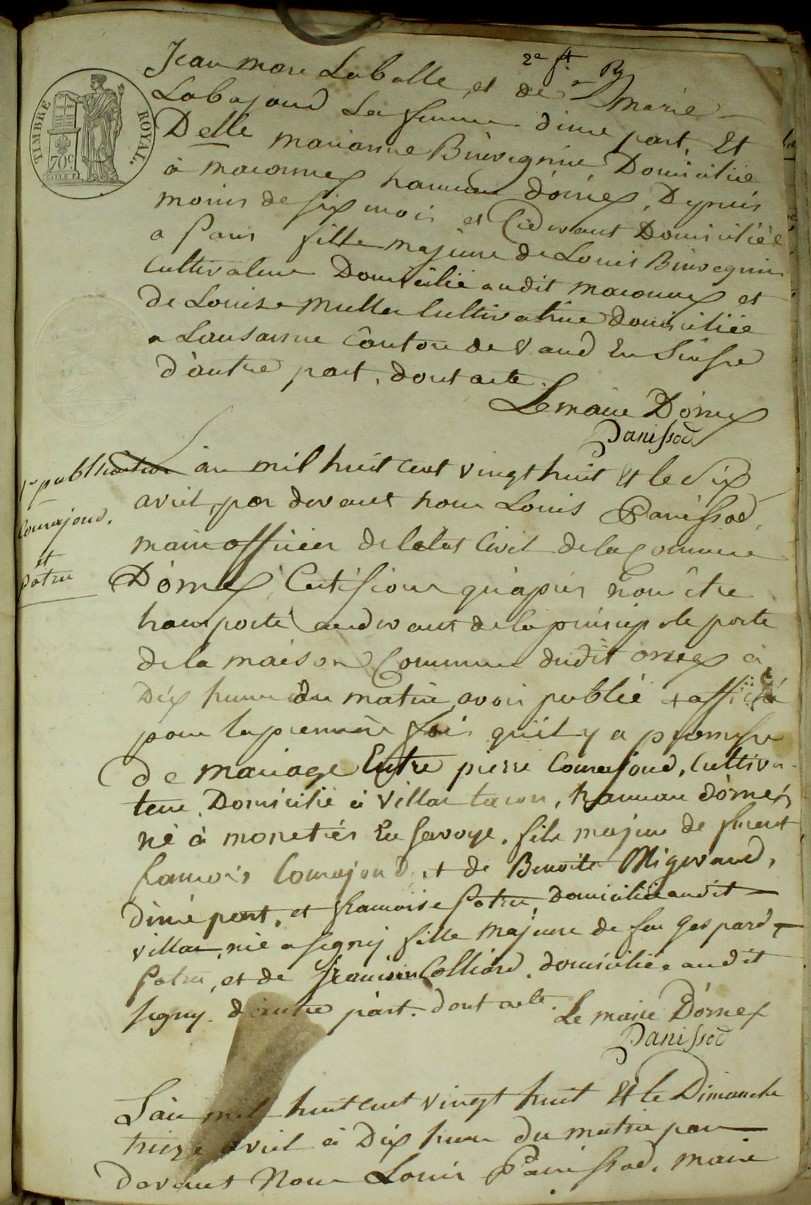 2e ft
TIMBRE ROYAL
70c
Jean marc Laballe et de marie
Labajoud Sa femme d'une part, Et
Delle marianne Binvegnin Domiciliée
à maconnex hameau d'ornex, Depuis
moins de six mois et Cidevant Domiciliée
a Paris fille majeure de Louis Binvegnin
Cultivateur Domicilié audit maconnex et
de Louise muller Cultivatrice domiciliée
a Lausanne Canton de Vaud En Suisse
d'autre part, dont acte.
Le maire D'ornex
Panissod
1e publication
Courajoud.
et
Potru
L'an mil huit cent vingt huit Et le Six
avril, par devant nous Louis Panissod,
maire officier de l'etat Civil de la Commune
D'ornex, Certifions qu'apres Nous être
transporté audevant de la principale porte
de la maison Commune dudit ornex à
Dix heures du matin avoir publié & affiché
pour la premiere fois qu'il y a promesse
de mariage Entre pierre Courajoud, Cultiva-
teur Domicilié à Villar tacon, hameau d'ornex,
né à monetiés En Savoye, fils majeur de
francois Courajoud, et de Benoite
d'une part, et francoise Potru Domiciliée audit
Villar, née a Segny fille majeure de feu Gaspard
Potru, et de Colliard, domiciliée audit
Segny d'autre part, dont acte. Le maire D'ornex
Panissod
L'an mil huit cent vingt huit Et le Dimanche
treize avril à Dix heures du matin par
devant Nous Louis Panissod, maire